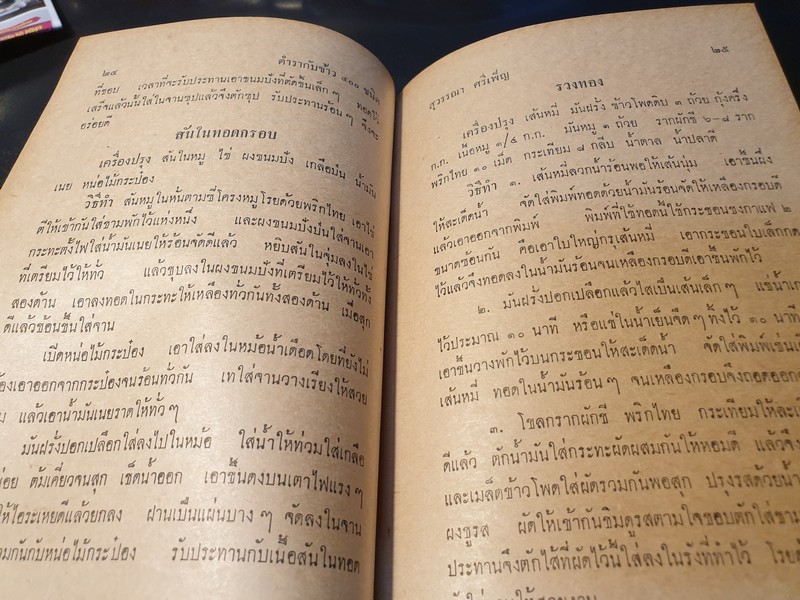 ๒๔
ตำรากับข้าว ๔๐๐ ชนิด
ที่ชอบ เวลาที่จะรับประทานเอาขนมปังที่ตัดชิ้นเล็กๆ ทอดไว้
เสร็จแล้วนั้นใส่ในจานซุปแล้วจึงตักซุป รับประทานร้อนๆ จึงจะ
อร่อยดี
สันในทอดกรอบ
เครื่องปรุง สันในหมู ไข่ ผงขนมปัง เกลือป่น น้ำมัน
เนย หน่อไม้กระป๋อง
วิธีทำ สันหมูในหั่นตามซี่โครงหมูโรยด้วยพริกไทย เอาไข่
ตีให้เข้ากันใส่ชามพักไว้แห่งหนึ่ง และผงขนมปังป่นใส่จานเอา
กระทะตั้งไฟใส่น้ำมันเนยให้ร้อนจัดดีแล้ว หยิบสันในชุบลงในไข่
ที่เตรียมไว้ให้ทั่ว แล้วชุบลงในผงขนมปังที่เตรียมไว้ให้ทั่วทั้ง
สองด้าน เอาลงทอดในกระทะให้เหลืองทั่วกันทั้งสองด้าน เมื่อสุก
ดีแล้วช้อนขึ้นใส่จาน
เปิดหน่อไม้กระป๋อง เอาใส่ลงในหม้อน้ำเดือดโดยที่ยังไม่
ต้องเอาออกจากกระป๋องจนร้อนทั่วกัน เทใส่จานวางเรียงให้สวย
แล้วเอาน้ำมันเนยราดให้ทั่วๆ
มันฝรั่งปอกเปลือกใส่ลงไปในหม้อ ใส่น้ำให้ท่วมใส่เกลือ
ต้มเคี่ยวจนสุก เช็ดน้ำออก เอาขึ้นดงบนเตาไฟแรงๆ
ให้ไอระเหยดีแล้วยกลง ฝานเป็นแผ่นบางๆ จัดลงในจาน
กันกับหน่อไม้กระป๋อง รับประทานกับเนื้อสันในทอด
สุวรรณา ศรีเพ็ญ
๒๕
รวงทอง
เครื่องปรุง เส้นหมี่ มันฝรั่ง ข้าวโพดดิบ ๓ ถ้วย กุ้งครึ่ง
ก.ก. เนื้อหมู ๑/๔ ก.ก. มันหมู ๑ ถ้วย รากผักชี ๖-๘ ราก
พริกไทย ๑๐ เม็ด กระเทียม ๘ กลีบ น้ำตาล น้ำปลาดี
วิธีทำ ๑. เส้นหมี่ลวกน้ำร้อนพอให้เส้นนุ่ม เอาขึ้นผึ่ง
ให้สะเด็ดน้ำ จัดใส่พิมพ์ทอดด้วยน้ำมันร้อนจัดให้เหลืองกรอบดี
แล้วเอาออกจากพิมพ์ พิมพ์ที่ใช้ทอดนี้ใช้กระชอนชงกาแฟ ๒
ขนาดซ้อนกัน คือเอาใบใหญ่กรุเส้นหมี่ เอากระชอนใบเล็กกด
ไว้แล้วจึงทอดลงในน้ำมันร้อนจนเหลืองกรอบดีเอาขึ้นพักไว้
๒. มันฝรั่งปอกเปลือกแล้วไสเป็นเส้นเล็กๆ แช่น้ำเก
ไว้ประมาณ ๑๐ นาที หรือแช่ในน้ำเย็นจืดๆ ทิ้งไว้ ๑๐ นาที
เอาขึ้นวางพักไว้บนกระชอนให้สะเด็ดน้ำ จัดใส่พิมพ์เช่น
เส้นหมี่ ทอดในน้ำมันร้อนๆ จนเหลืองกรอบจึงถอดออก
๓. โขลกรากผักชี พริกไทย กระเทียมให้ละเ
ดีแล้ว ตักน้ำมันใส่กระทะผัดผสมกันให้หอมดี แล้วจึง
และเมล็ดข้าวโพดใส่ผัดรวมกันพอสุก ปรุงรสด้วยน้ำ
ผงชูรส ผัดให้เข้ากันชิมดูรสตามใจชอบตักใส่ชาม
ประทานจึงตักไส้ที่ผัดไว้นี้ใส่ลงในรังที่ทำไว้ โรย